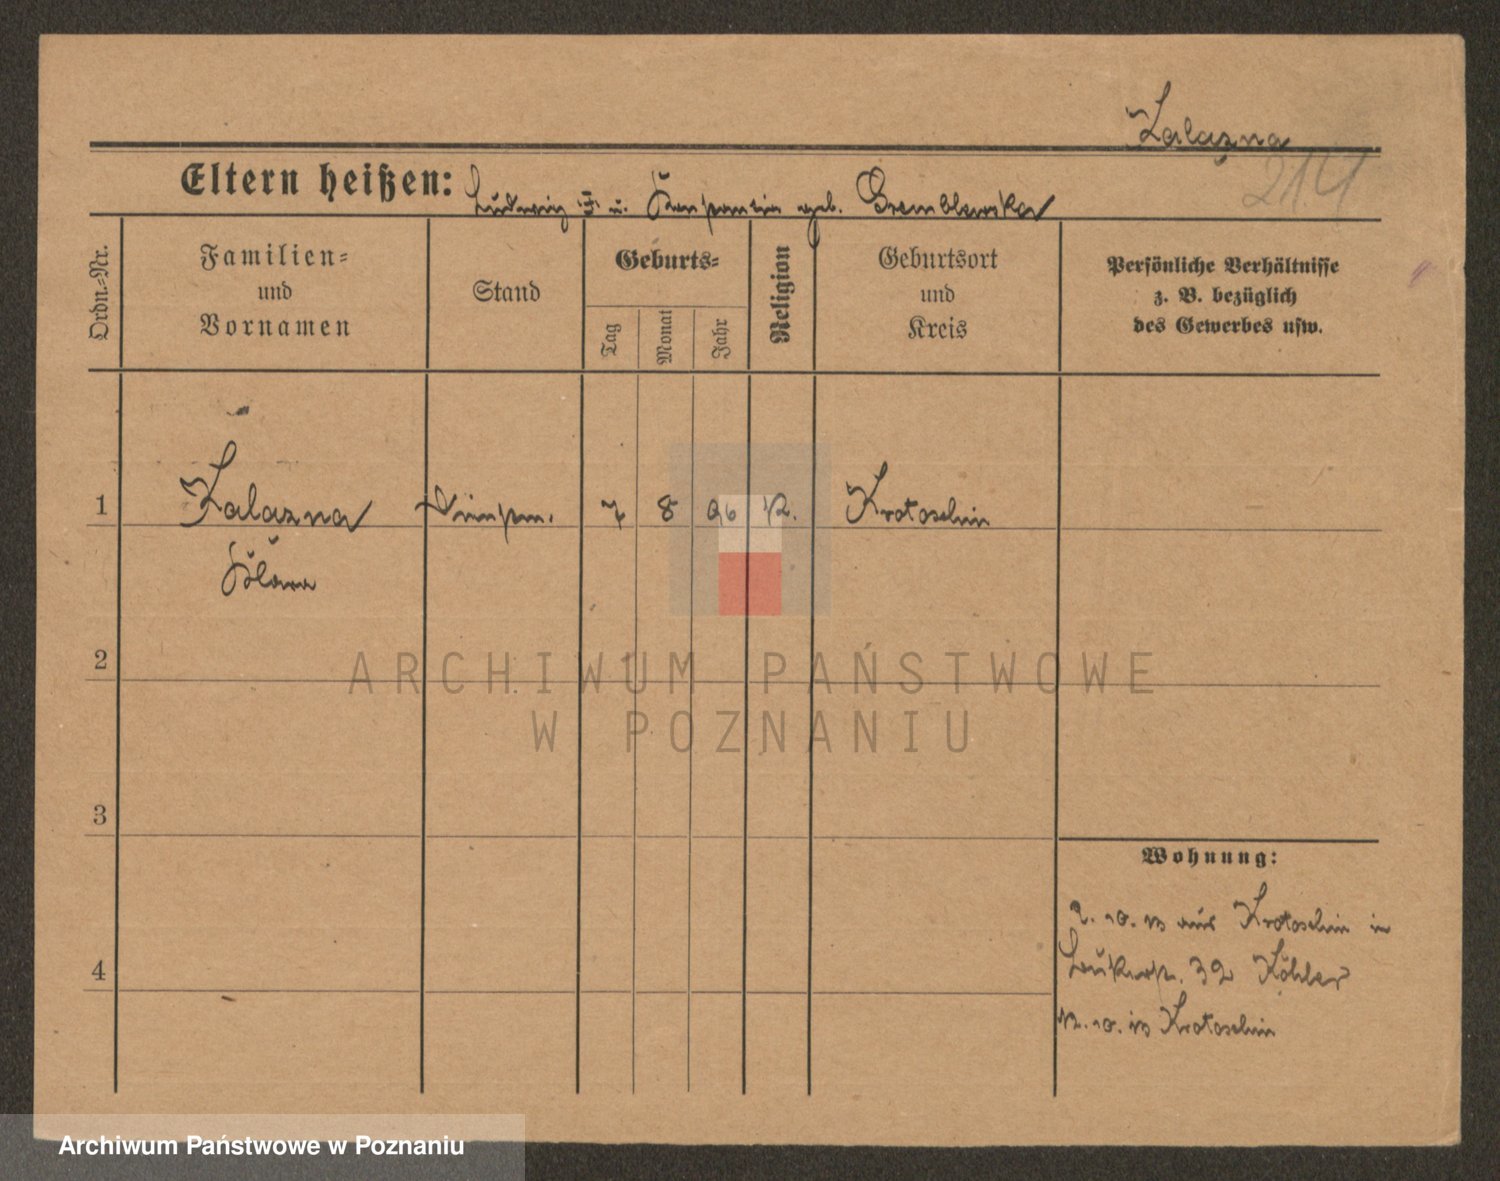 Zalazna
214
Eltern heißen: Ludwig u. geb. Gremblewska
Ordn.=Nr.
Familien=
und
Vornamen
Stand
Geburts=
Tag
Monat
Jahr
Religion
Geburtsort
und
Kreis
Persönliche Verhältnisse
z. B. bezüglich
des Gewerbes usw.
1 Zalazna 7 8 96 K. Krotoschin
Klara
2
ARCHIWUM PAŃSTWOWE
W POZNANIU
3
Wohnung:
2. 10. 13 aus Krotoschin in
32 Köhler
4
12. 10. 13 Krotoschin
Archiwum Państwowe w Poznaniu